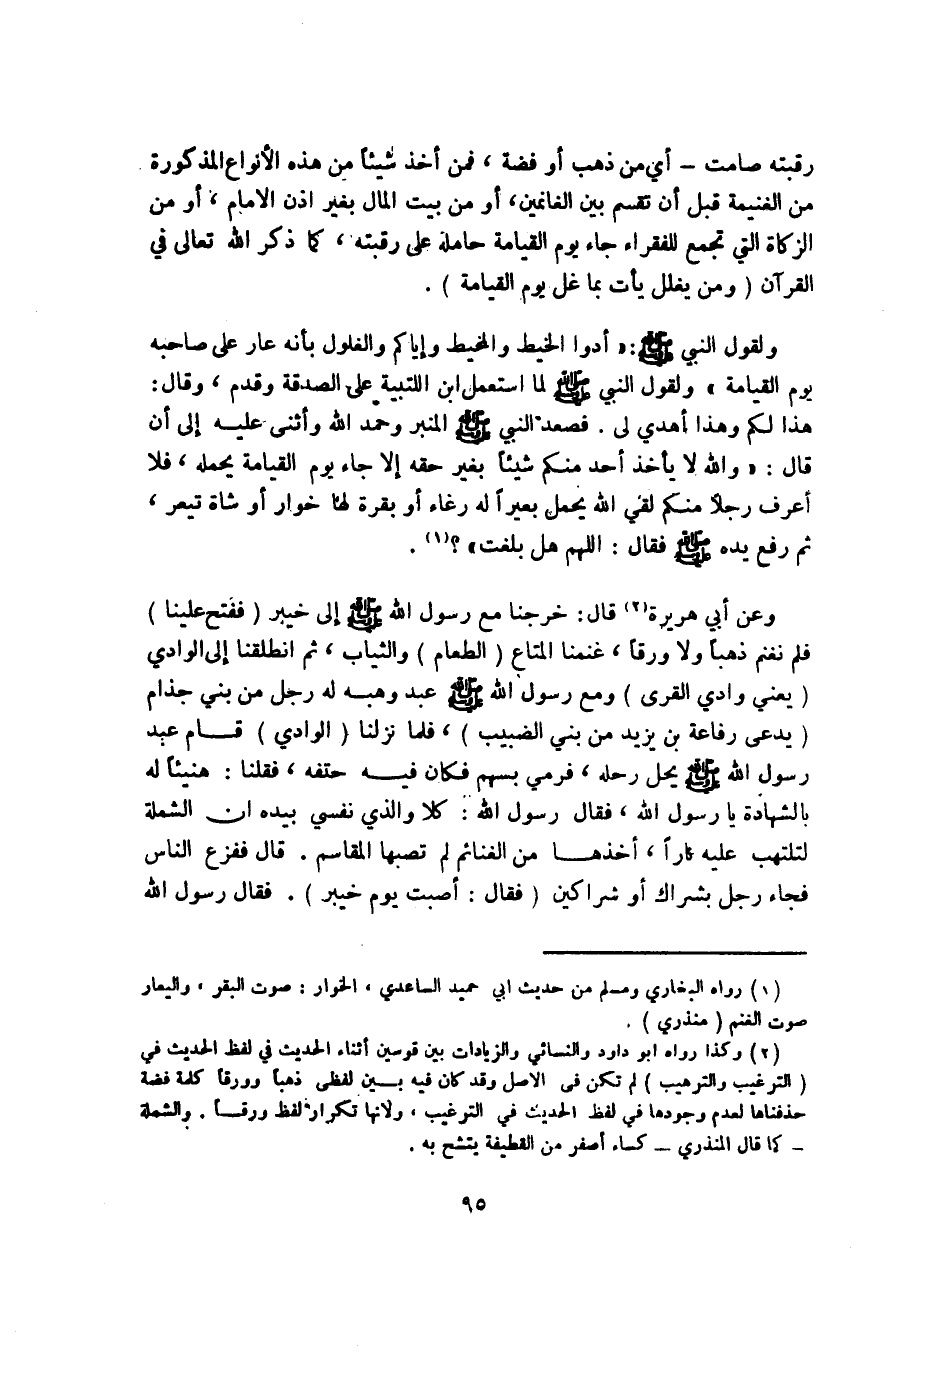 رقبته صامت – أي من ذهب أو فضة ، فمن أخذ شيئاً من هذه الأنواع المذكورة
من الغنيمة قبل أن تقسم بين الغانمين، أو من بيت المال بغير اذن الامام ، أو من
الزكاة التي تجمع للفقراء جاء يوم القيامة حاملة على رقبته ، كما ذكر الله تعالى في
القرآن ( ومن يغلل يأت بما غل يوم القيامة ) .
ولقول النبي ﷺ : « أدوا الخيط والمخيط وإياكم والغلول بأنه عار على صاحبه
يوم القيامة » ولقول النبي ﷺ لما استعمل ابن اللتبية على الصدقة وقدم ، وقال :
هذا لكم وهذا أهدي لى . فصعد النبي ﷺ المنبر وحمد الله وأثنى عليه إلى أن
قال : « والله لا يأخذ أحد منكم شيئاً بغير حقه إلا جاء يوم القيامة يحمله ، فلا
أعرف رجلاً منكم لقي الله يحمل بعيراً له رغاء أو بقرة لها خوار أو شاة تيعر ،
ثم رفع يده ﷺ فقال : اللهم هل بلغت» ؟(١) .
وعن أبي هريرة(٢) قال: خرجنا مع رسول الله ﷺ إلى خيبر ( ففتح علينا )
فلم نغنم ذهباً ولا ورقاً ، غنمنا المتاع ( الطعام ) والثياب ، ثم انطلقنا إلى الوادي
( يعني وادي القرى ) ومع رسول الله ﷺ عبد وهبه له رجل من بني جذام
( يدعى رفاعة بن يزيد من بني الضبيب ) ، فلما نزلنا ( الوادي ) قام عبد
رسول الله ﷺ يحل رحله ، فرمي بسهم فكان فيه حتفه ، فقلنا : هنيئاً له
بالشهادة يا رسول الله ، فقال رسول الله : كلا والذي نفسي بيده ان الشملة
لتلتهب عليه ناراً ، أخذها من الغنائم لم تصبها المقاسم . قال ففزع الناس
فجاء رجل بشراك أو شراكين ( فقال : أصبت يوم خيبر ) . فقال رسول الله
(١) رواه البخاري ومسلم من حديث ابي حميد الساعدي ، الخوار : صوت البقر ، واليعار
صوت الغنم ( منذري ) .
(٢) وكذا رواه ابو داود والنسائي والزيادات بين قوسين أثناء الحديث في لفظ الحديث في
( الترغيب والترهيب ) لم تكن فى الاصل وقد كان فيه بين لفظى ذهباً وورقاً كلمة فضة
حذفناها لعدم وجودها في لفظ الحديث في الترغيب ، ولانها تكرار لفظ ورقاً . والشملة
– كما قال المنذري – كساء أصغر من القطيفة يتشح به .
٩٥